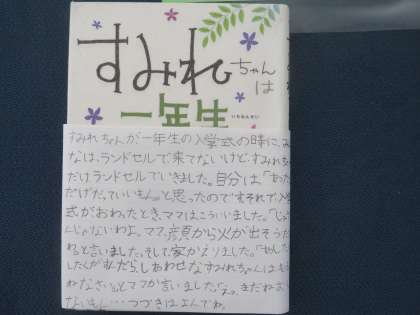 すみれちゃんは
一年生
いちねんせい
すみれちゃんが一年生の入学式の時に、み
なは、ランドセルで来てないけど、すみれちゃ
だけランドセルでいきました。自分は「あた
だけだっていいもん。」と思ったのですそれで入学
式がおわったとき、ママはこういいました。「じょ
んじゃないわよ。ママ、顔から火が出そうだ
わ」と言いました。そして家かえりました。
したくが すしあわせなすみれちゃんは
わなさい。」とママが言いました。「え。まだねむ
ないもん…つづきはよんでね。